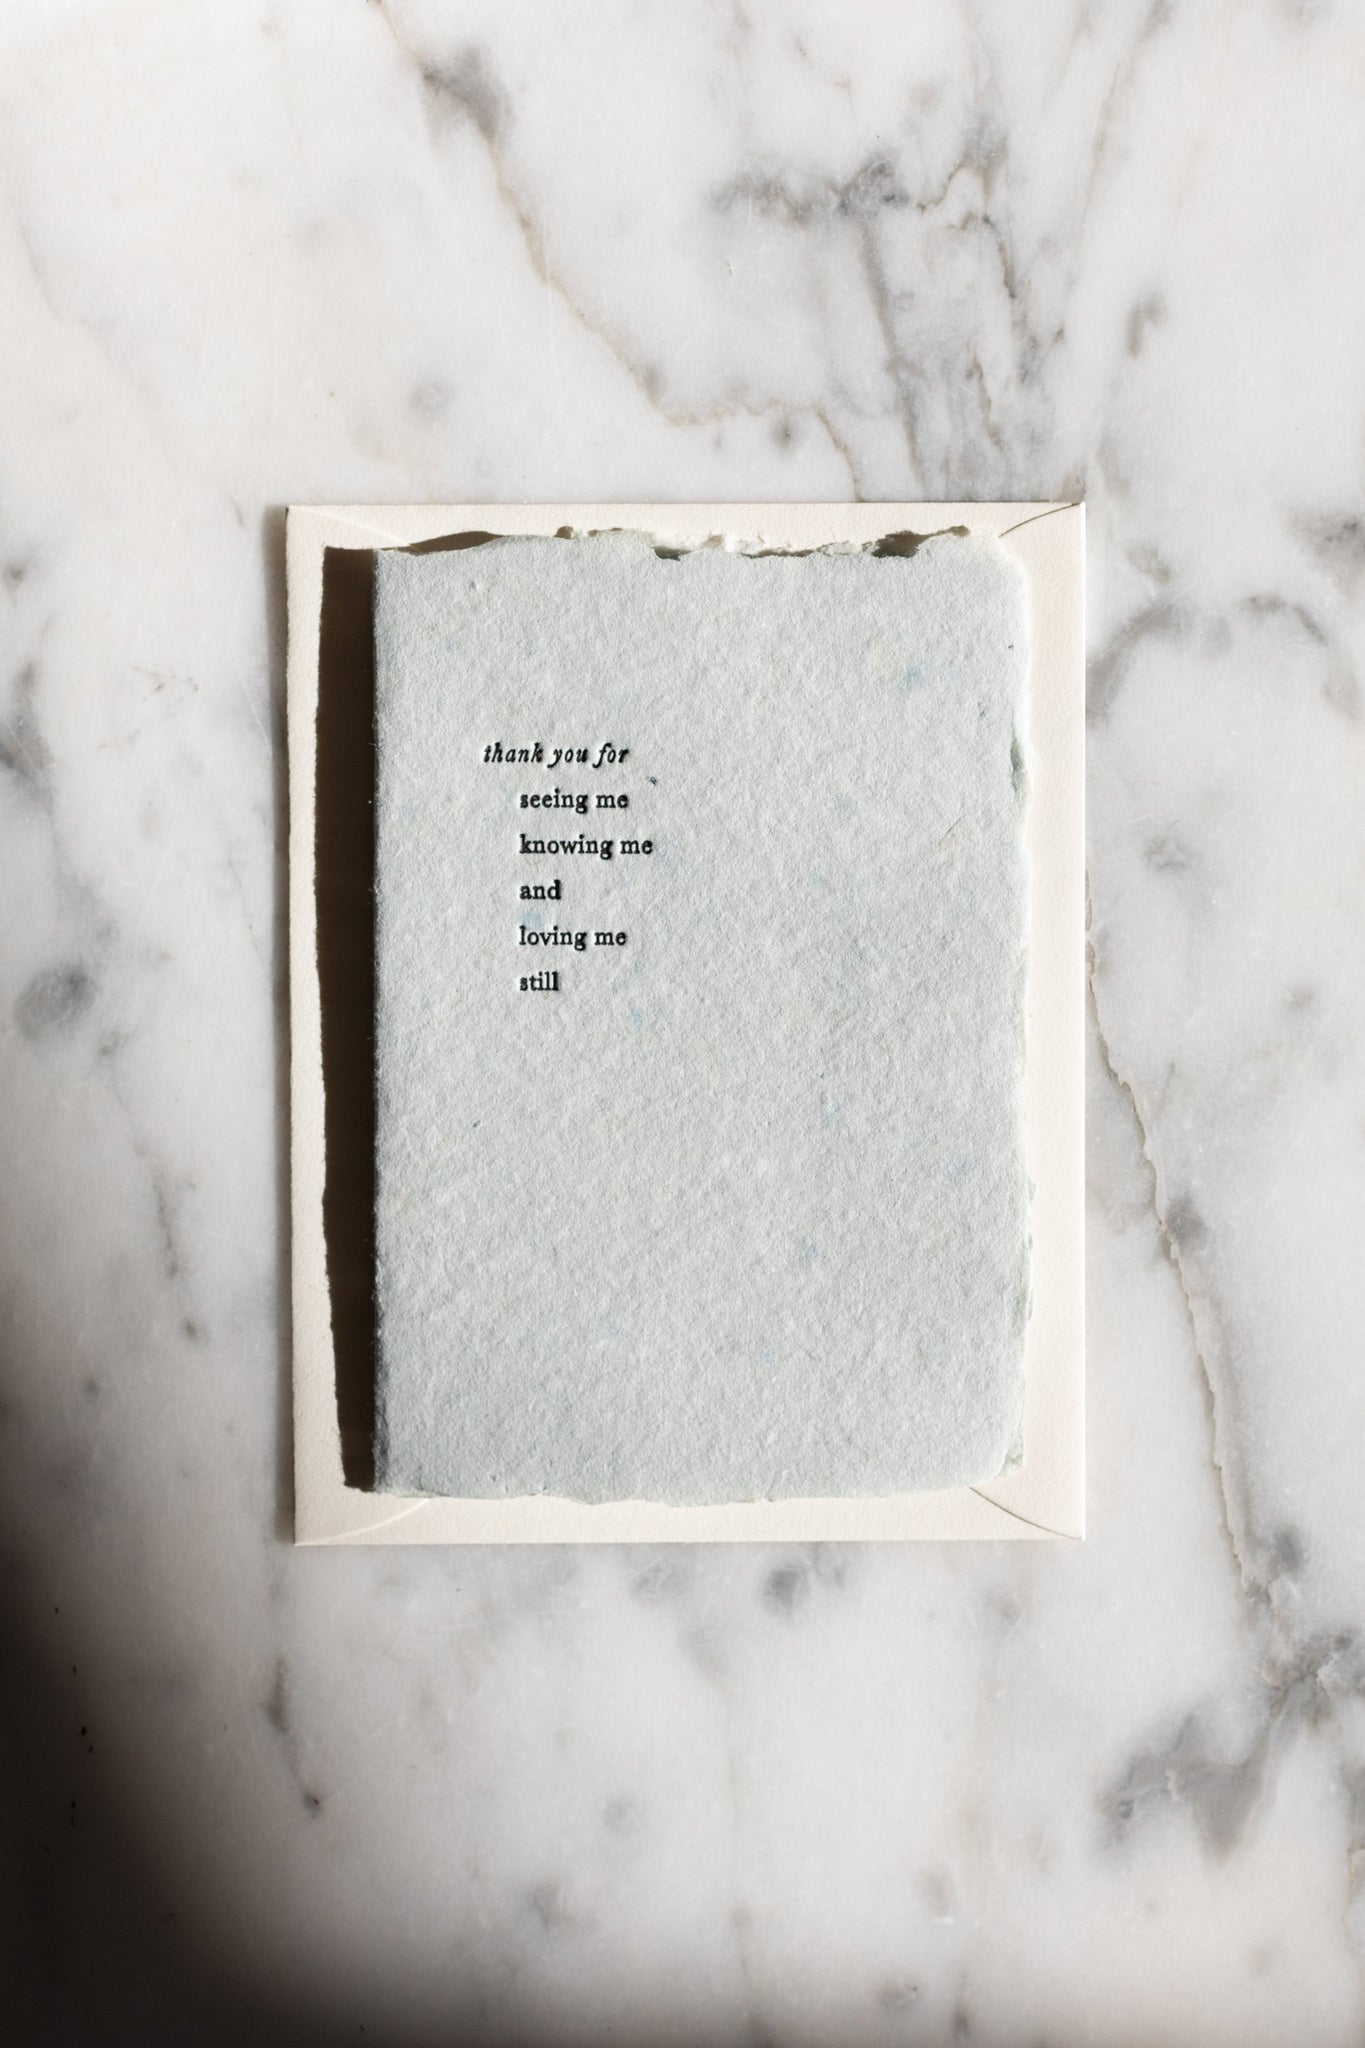 thank you for
seeing me
knowing me
and
loving me
still